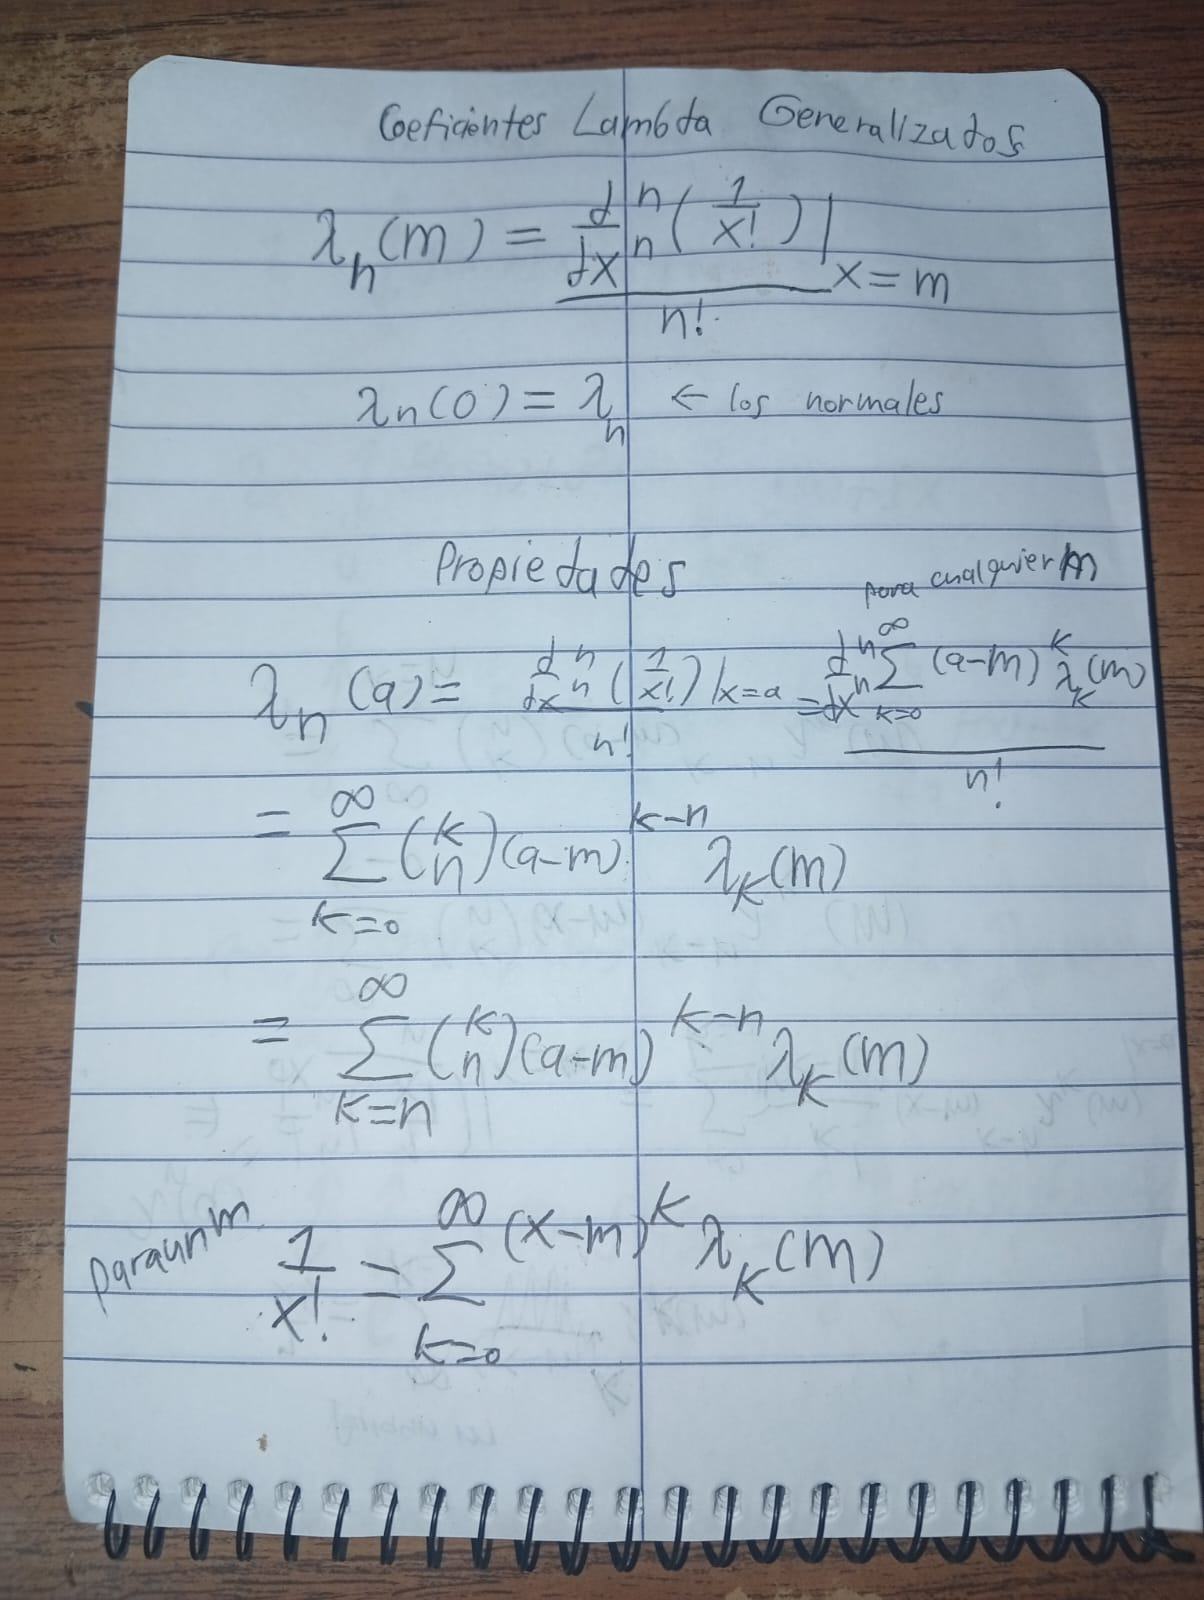 Coeficientes Lambda Generalizados
λₙ(m) = dⁿ/dxⁿ (1/x!)|x=m / n!
λₙ(0) = λₙ ← los normales
Propiedades
para cualquier m
λₙ(a) = dⁿ/dxⁿ (1/x!)|x=a / n! = dⁿ/dxⁿ ∑_{k=0}^{∞} (a-m)^k λ_k(m) / n!
= ∑_{k=0}^{∞} (k n)(a-m)^{k-n} λ_k(m)
= ∑_{k=n}^{∞} (k n)(a-m)^{k-n} λ_k(m)
para un m 1/x! = ∑_{k=0}^{∞} (x-m)^k λ_k(m)